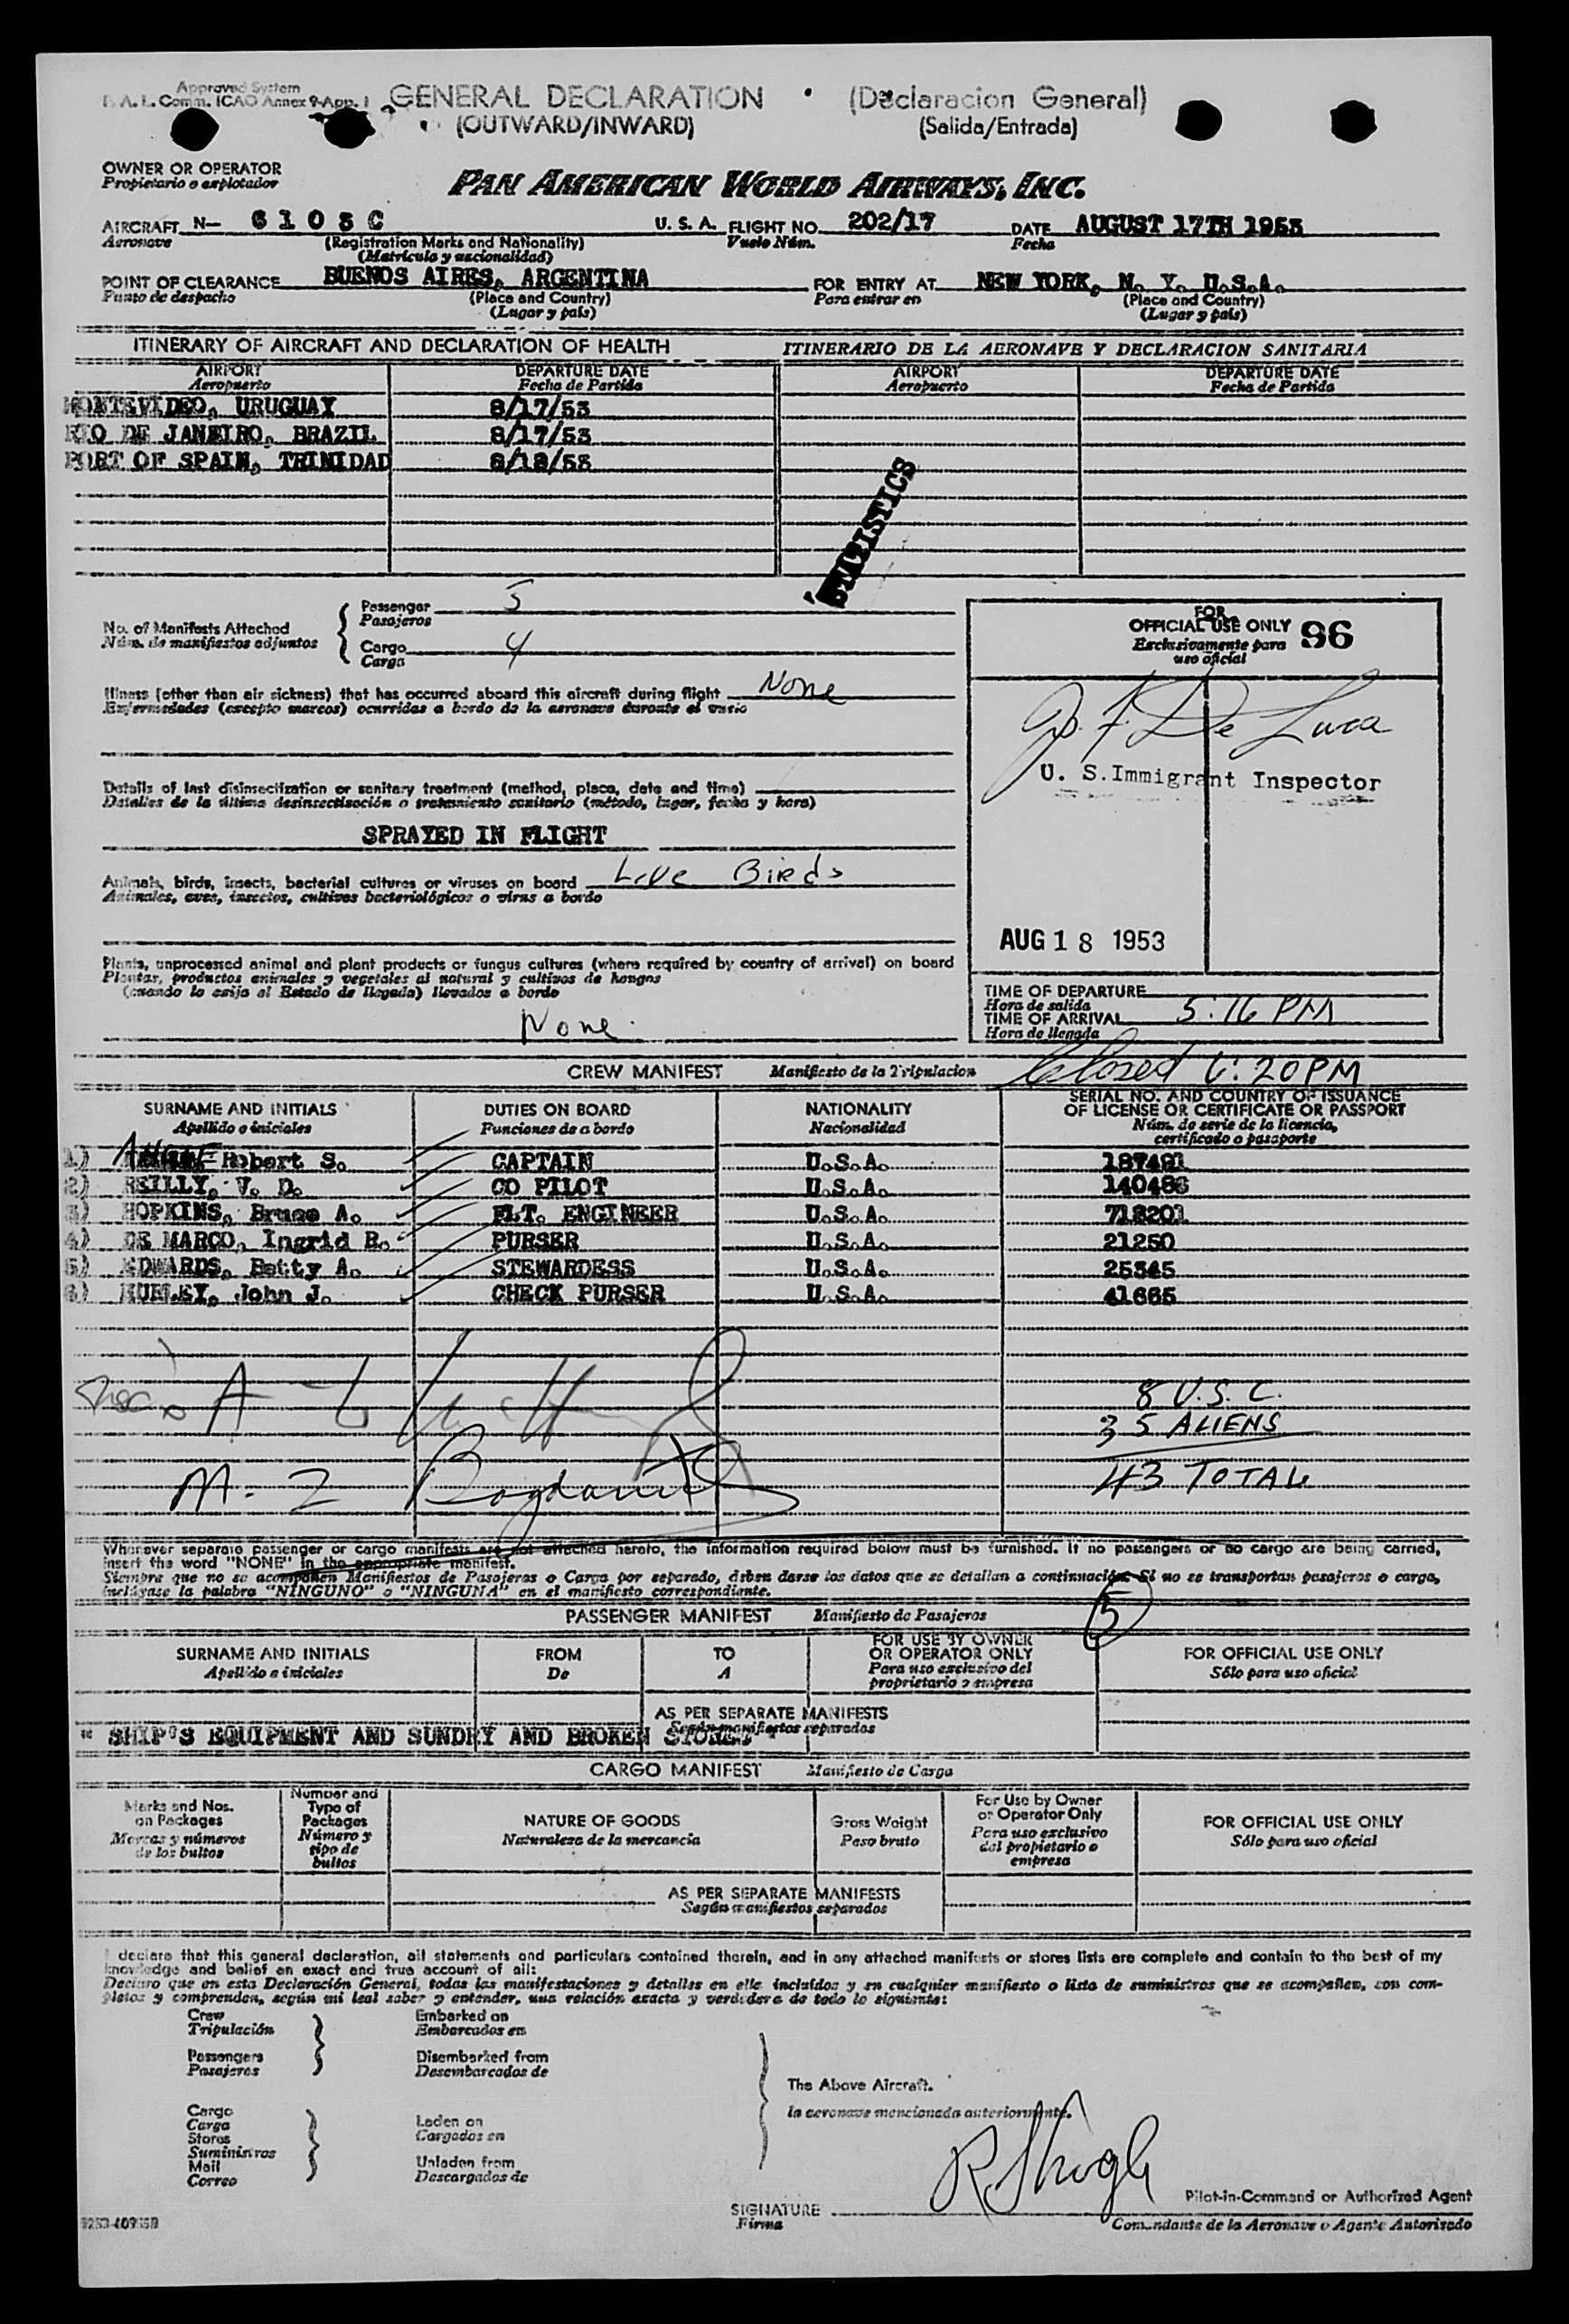 Approved System
Comm. ICAO Annex 9-App. I
GENERAL DECLARATION (Declaracion General)
(OUTWARD/INWARD) (Salida/Entrada)
OWNER OR OPERATOR
Propietario o explotador
PAN AMERICAN WORLD AIRWAYS, INC.
AIRCRAFT N— 6103C U. S. A. FLIGHT NO. 202/17 DATE AUGUST 17TH 1953
Aeronave (Registration Marks and Nationality) Vuelo Núm. Fecha
(Matrícula y nacionalidad)
POINT OF CLEARANCE BUENOS AIRES, ARGENTINA FOR ENTRY AT NEW YORK, N. Y. U.S.A.
Punto de despacho (Place and Country) Para entrar en (Place and Country)
(Lugar y país) (Lugar y país)
ITINERARY OF AIRCRAFT AND DECLARATION OF HEALTH ITINERARIO DE LA AERONAVE Y DECLARACION SANITARIA
AIRPORT DEPARTURE DATE AIRPORT DEPARTURE DATE
Aeropuerto Fecha de Partida Aeropuerto Fecha de Partida
MONTEVIDEO, URUGUAY 8/17/53
RIO DE JANEIRO, BRAZIL 8/17/53
PORT OF SPAIN, TRINIDAD 8/18/53
STATISTICS
No. of Manifests Attached Passenger 5
Núm. de manifiestos adjuntos Pasajeros
Cargo 4
Carga
FOR
OFFICIAL USE ONLY 96
Exclusivamente para
uso oficial
Illness (other than air sickness) that has occurred aboard this aircraft during flight None
Enfermedades (excepto mareos) ocurridas a bordo de la aeronave durante el vuelo
De Luca
U. S. Immigrant Inspector
Details of last disinsectization or sanitary treatment (method, place, date and time)
Detalles de la última desinsectisación o tratamiento sanitario (método, lugar, fecha y hora)
SPRAYED IN FLIGHT
Animals, birds, insects, bacterial cultures or viruses on board Live Birds
Animales, aves, insectos, cultivos bacteriológicos o virus a bordo
AUG 18 1953
Plants, unprocessed animal and plant products or fungus cultures (where required by country of arrival) on board
Plantas, productos animales y vegetales al natural y cultivos de hongos
(cuando lo exija el Estado de llegada) llevados a bordo
None
TIME OF DEPARTURE
Hora de salida
TIME OF ARRIVAL 5:16 PM
Hora de llegada
CREW MANIFEST Manifiesto de la Tripulacion Closed 6:20 PM
SURNAME AND INITIALS DUTIES ON BOARD NATIONALITY SERIAL NO. AND COUNTRY OF ISSUANCE
OF LICENSE OR CERTIFICATE OR PASSPORT
Apellido o iniciales Funciones de a bordo Nacionalidad Núm. de serie de la licencia,
certificado o pasaporte
1) Robert S. CAPTAIN U.S.A. 187491
2) REILLY, V. D. CO PILOT U.S.A. 140486
3) HOPKINS, Bruce A. FLT. ENGINEER U.S.A. 718201
4) DE MARCO, Ingrid B. PURSER U.S.A. 21250
5) EDWARDS, Betty A. STEWARDESS U.S.A. 25345
6) John J. CHECK PURSER U.S.A. 41665
8 U.S.C.
35 ALIENS
43 TOTAL
Whenever separate passenger or cargo manifests are not attached hereto, the information required below must be furnished. If no passengers or no cargo are being carried,
insert the word "NONE" in the appropriate manifest.
Siempre que no se acompañen Manifiestos de Pasajeros o Carga por separado, deben darse los datos que se detallan a continuación. Si no se transportan pasajeros o carga,
inclúyase la palabra "NINGUNO" o "NINGUNA" en el manifiesto correspondiente.
PASSENGER MANIFEST Manifiesto de Pasajeros 5
SURNAME AND INITIALS FROM TO FOR USE BY OWNER
OR OPERATOR ONLY FOR OFFICIAL USE ONLY
Apellido e iniciales De A Para uso exclusivo del
propietario o empresa Sólo para uso oficial
AS PER SEPARATE MANIFESTS
Según manifiestos separados
" SHIP'S EQUIPMENT AND SUNDRY AND BROKEN STORES "
CARGO MANIFEST Manifiesto de Carga
Marks and Nos.
on Packages
Marcas y números
de los bultos
Number and
Type of
Packages
Número y
tipo de
bultos
NATURE OF GOODS
Naturaleza de la mercancía
Gross Weight
Peso bruto
For Use by Owner
or Operator Only
Para uso exclusivo
del propietario o
empresa
FOR OFFICIAL USE ONLY
Sólo para uso oficial
AS PER SEPARATE MANIFESTS
Según manifiestos separados
I declare that this general declaration, all statements and particulars contained therein, and in any attached manifests or stores lists are complete and contain to the best of my
knowledge and belief an exact and true account of all:
Declaro que en esta Declaración General, todas las manifestaciones y detalles en elle incluídos y en cualquier manifiesto o lista de suministros que se acompañen, son com-
pletos y comprenden, según mi leal saber y entender, una relación exacta y verdadera de todo lo siguiente:
Crew Embarked on
Tripulación Embarcados en
Passengers Disembarked from
Pasajeros Desembarcados de
The Above Aircraft.
la aeronave mencionada anteriormente.
Cargo
Carga Laden on
Stores Cargados en
Suministros
Mail Unladen from
Correo Descargados de
SIGNATURE Pilot-in-Command or Authorized Agent
Firma Comandante de la Aeronave o Agente Autorizado